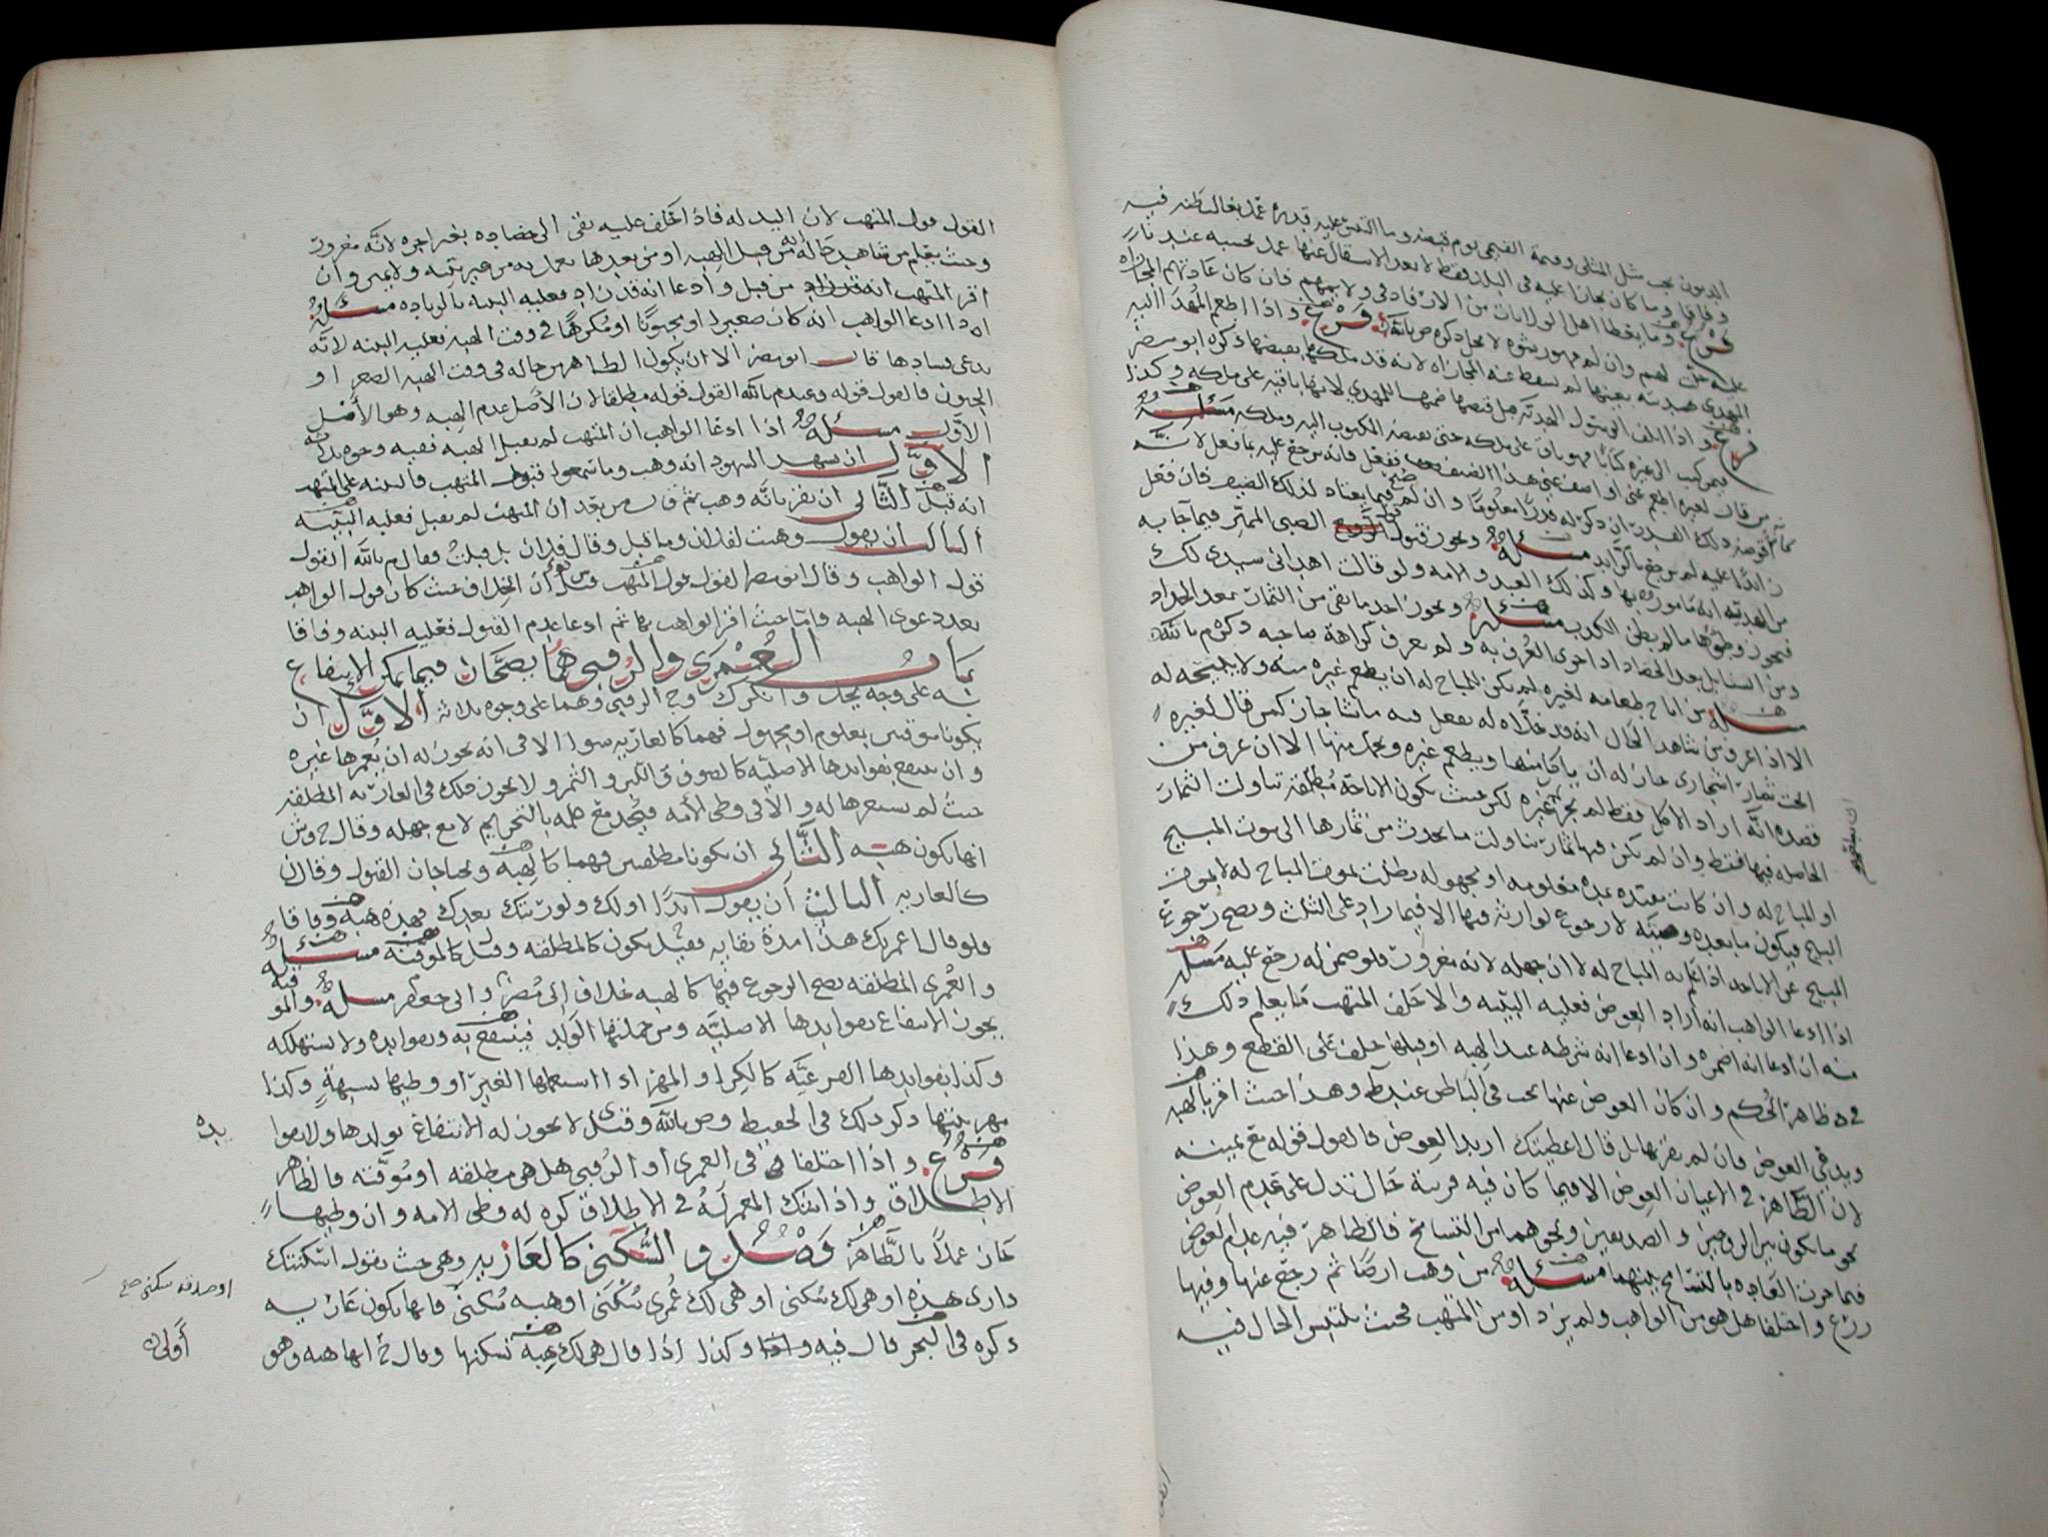 الديون يجب مثل المثلي وقيمة القيمي يوم قبضه وما التبس عليه قدره عمل بغالب ظنه فيه
وفاقا وما كان مجازا عليه في البلد فقط لا بعد الانتقال عنها عمل بحسبه عند نا
فرع وما يعطا اهل الولايات من الان فادى ولايتهم فان كان عادتهم المجازاه
عليه حلت لهم وان لم رشوه لا يحل ذكره ص بالله فرع واذا اطعم المهدا اليه
المهدي هديته بعينها لم يسقط عنه المجازاه لانه قد ملكها بقبضها ذكره ابو مضر
فرع واذا اتلف الرسول الهديه قبل قبضها ضمنها للمهدي لانها باقيه على ملكه وكذا
فيمن كتب الى غيره كتابا فهو باق على ملكه حتى يقبضه المكتوب اليه وملكه مسئله
من قال لغيره اطعم عني او اضف عني هذا الضيف ففعل فانه يرجع عليه بما فعل لانه
ذلك القدر ان ذكر له قدرا معلوما وان لم فيما يعتاد لذلك الضيف فان فعل
زائدا عليه لم يرجع بالزايد مسئله ويجوز قبول الصبي المميز فيما جا به
من الهديه انه مامور بها وكذلك العبد والامه ولو قالت اهداني سيدي لك
فيجوز وطؤها ما لم يظن الكذب مسئله ويجوز اخذ ما بقي من الثمار بعد الجداد
ومن السنابل بعد الحصاد اذا جرى العرف به ولم يعرف كراهة صاحبه ذكره م بالله
مسئله من اباح طعامه لغيره لم يكن للمباح له ان يطعم غيره منه ولا يبيحه له
الا اذا عرف من شاهد الحال انه قد خلاه له يفعل فيه ما شا جاز كمن قال لغيره
ابحت ثمار اشجاري جاز له ان ياكل منها ويطعم غيره ويحمل منها الا ان عرف من
قصده انه اراد الاكل فقط لم يجز غيره لكن حيث يكون الاباحة مطلقة تناولت الثمار
الحاصله فيها فقط وان لم يكن فيها ثمار تناولت ما يحدث من ثمارها الى موت المبيح
او المباح له وان كانت مقيده بمده معلومه او مجهوله بطلت بموت المباح له لا بموت
المبيح فيكون ما بعده وصيه لا رجوع لوارثه فيها الا فيما زاد على الثلث ويصح رجوع
المبيح عن الاباحه اذا علم به المباح له لا ان جهله لانه مغرور فلو ضمن له رجع عليه مسئله
اذا ادعا الواهب انه اراد العوض فعليه البينه والا حلف المتهب ما يعلم ذلك
منه ان ادعا انه اضمره وان ادعا انه شرطه عند الهبه او قبلها حلف على القطع وهذا
في ظاهر الحكم وان كان العوض عنها يجب في الباطن عند ط وهذا حيث اقر بالهبه
ويدعي العوض فان لم يقر بها بل قال اعطيتك اريد العوض فالقول قوله مع يمينه
لان الظاهر في الاعيان العوض الا فيما كان فيه قرينة حال تدل على عدم العوض
نحو ما يكون بين الزوجين والصديقين ونحوهما من التسامح فالظاهر فيه عدم العوض
فيما جرت العاده بالتسامح بينهما مسئله من وهب ارضا ثم رجع عنها وفيها
زرع واختلفا هل هو من الواهب ولم يزد او من المتهب فحيث يلتبس الحال فيه
القول قول المتهب لان اليد له فاذا حلف عليه بقى الى حصاده بغير اجره لانه مغرور
وحيث يعلم من شاهد حاله انه من قبل الهبه او من بعدها يعمل به من غير بينه ولا يمين وان
اقر المتهب انه من قبل وادعا انه قد زاد فعليه البينه بالزياده مسئله
اذا ادعا الواهب انه كان صغيرا او مجنونا او مكرها في وقت الهبه فعليه البينه لانه
يدعي فسادها قال ابو مضر الا ان يكون الظاهر من حاله في وقت الهبه الصغر او
الجنون فالقول قوله وعند م بالله القول قوله مطلقا لان الاصل عدم الهبه وهو الاصل
الاول مسئله اذا ادعا الواهب ان المتهب لم يقبل الهبه ففيه وجوه ثلاثه
الاول ان يشهد الشهود انه وهب وما سمعوا قبول المتهب فالبينه على المتهب
انه قبل الثاني ان يقر بانه وهب ثم قال من بعد ان المتهب لم يقبل فعليه البينه
الثالث ان يقول وهبت لفلان وما قبل وقال فلان بل قبلت فقال م بالله القول
قول الواهب وقال ابو مضر القول قول المتهب قيل س ان الخلاف حيث كان قول الواهب
بعد دعوى الهبه فاما حيث اقر الواهب بها ثم ادعا عدم القبول فعليه البينه وفاقا
باب العمرى والرقبى هما يصحان فيما يمكن الانتفاع
به على وجه يحل وانكر ك وح الرقبى وهما على وجوه ثلاثه الاول ان
يكونا موقتين بمعلوم او مجهول فهما كالعاريه سوا الا في انه يجوز له ان يعمرها غيره
وان ينتفع بفوايدها الاصليه كالصوف واللبن والثمر ولا يجوز ذلك في العاريه المطلقه
حيث لم يستعرها له والا في وطى الامه فيحد مع علمه بالتحريم لا مع جهله وقال ح وش
انها يكون هبه الثاني ان يكونا مطلقين فهما كالهبه ويحتاجان القبول وقال ن
كالعاريه الثالث ان يقول ابدا او لك ولورثتك بعدك فهذه هبه وفاقا
فلو قال اعمرتك هذا مدة بقايه فقيل يكون كالمطلقه وقيل كالموقته مسئله
والعمرى المطلقه يصح الرجوع فيها كالهبه خلاف ابي مضر وابي جعفر مسئله والموقته
يجوز الانتفاع بفوايدها الاصليه ومن جملتها الولد فينتفع به وبفوايده ولا يستهلكه
وكذا بفوايدها الفرعيه كالكرا والمهر اذا استعملها الغير او وطيها بشبهة وكذا
مهر بنتها ذكر ذلك في الحفيظ وص بالله وقيل ى لا يجوز له الانتفاع بولدها ولا بفوا
يده
فرع واذا اختلفا في العمرى او الرقبى هل هي مطلقه او موقته فالظاهر
الاطلاق واذا انتك المعمر له في الاطلاق كره له وطى الامه وان وطيها
جاز عملا بالظاهر فصل والسكنى كالعاريه وهي حيث يقول اسكنتك
داري هذه او هي لك سكنى او هي لك عمرى سكنى او هبه سكنى فانها يكون عاريه
او صدقه سكنى صح
ذكره في البحر قال فيه وكذا اذا قال هي لك هبه تسكنها وقال ح انها هبه وهو
أولى